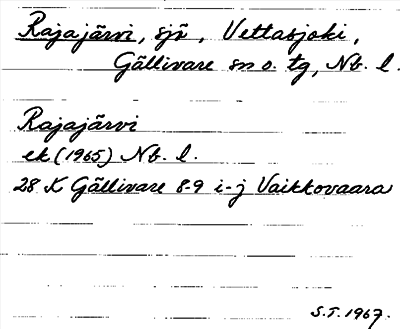 Rajajärvi, sjö, Vettasjoki,
Gällivare sn o. tg, Nb. l.
Rajajärvi
ek (1965) Nb. l.
28 K Gällivare 8-9 i-j Vaikkovaara
S.T. 1967.